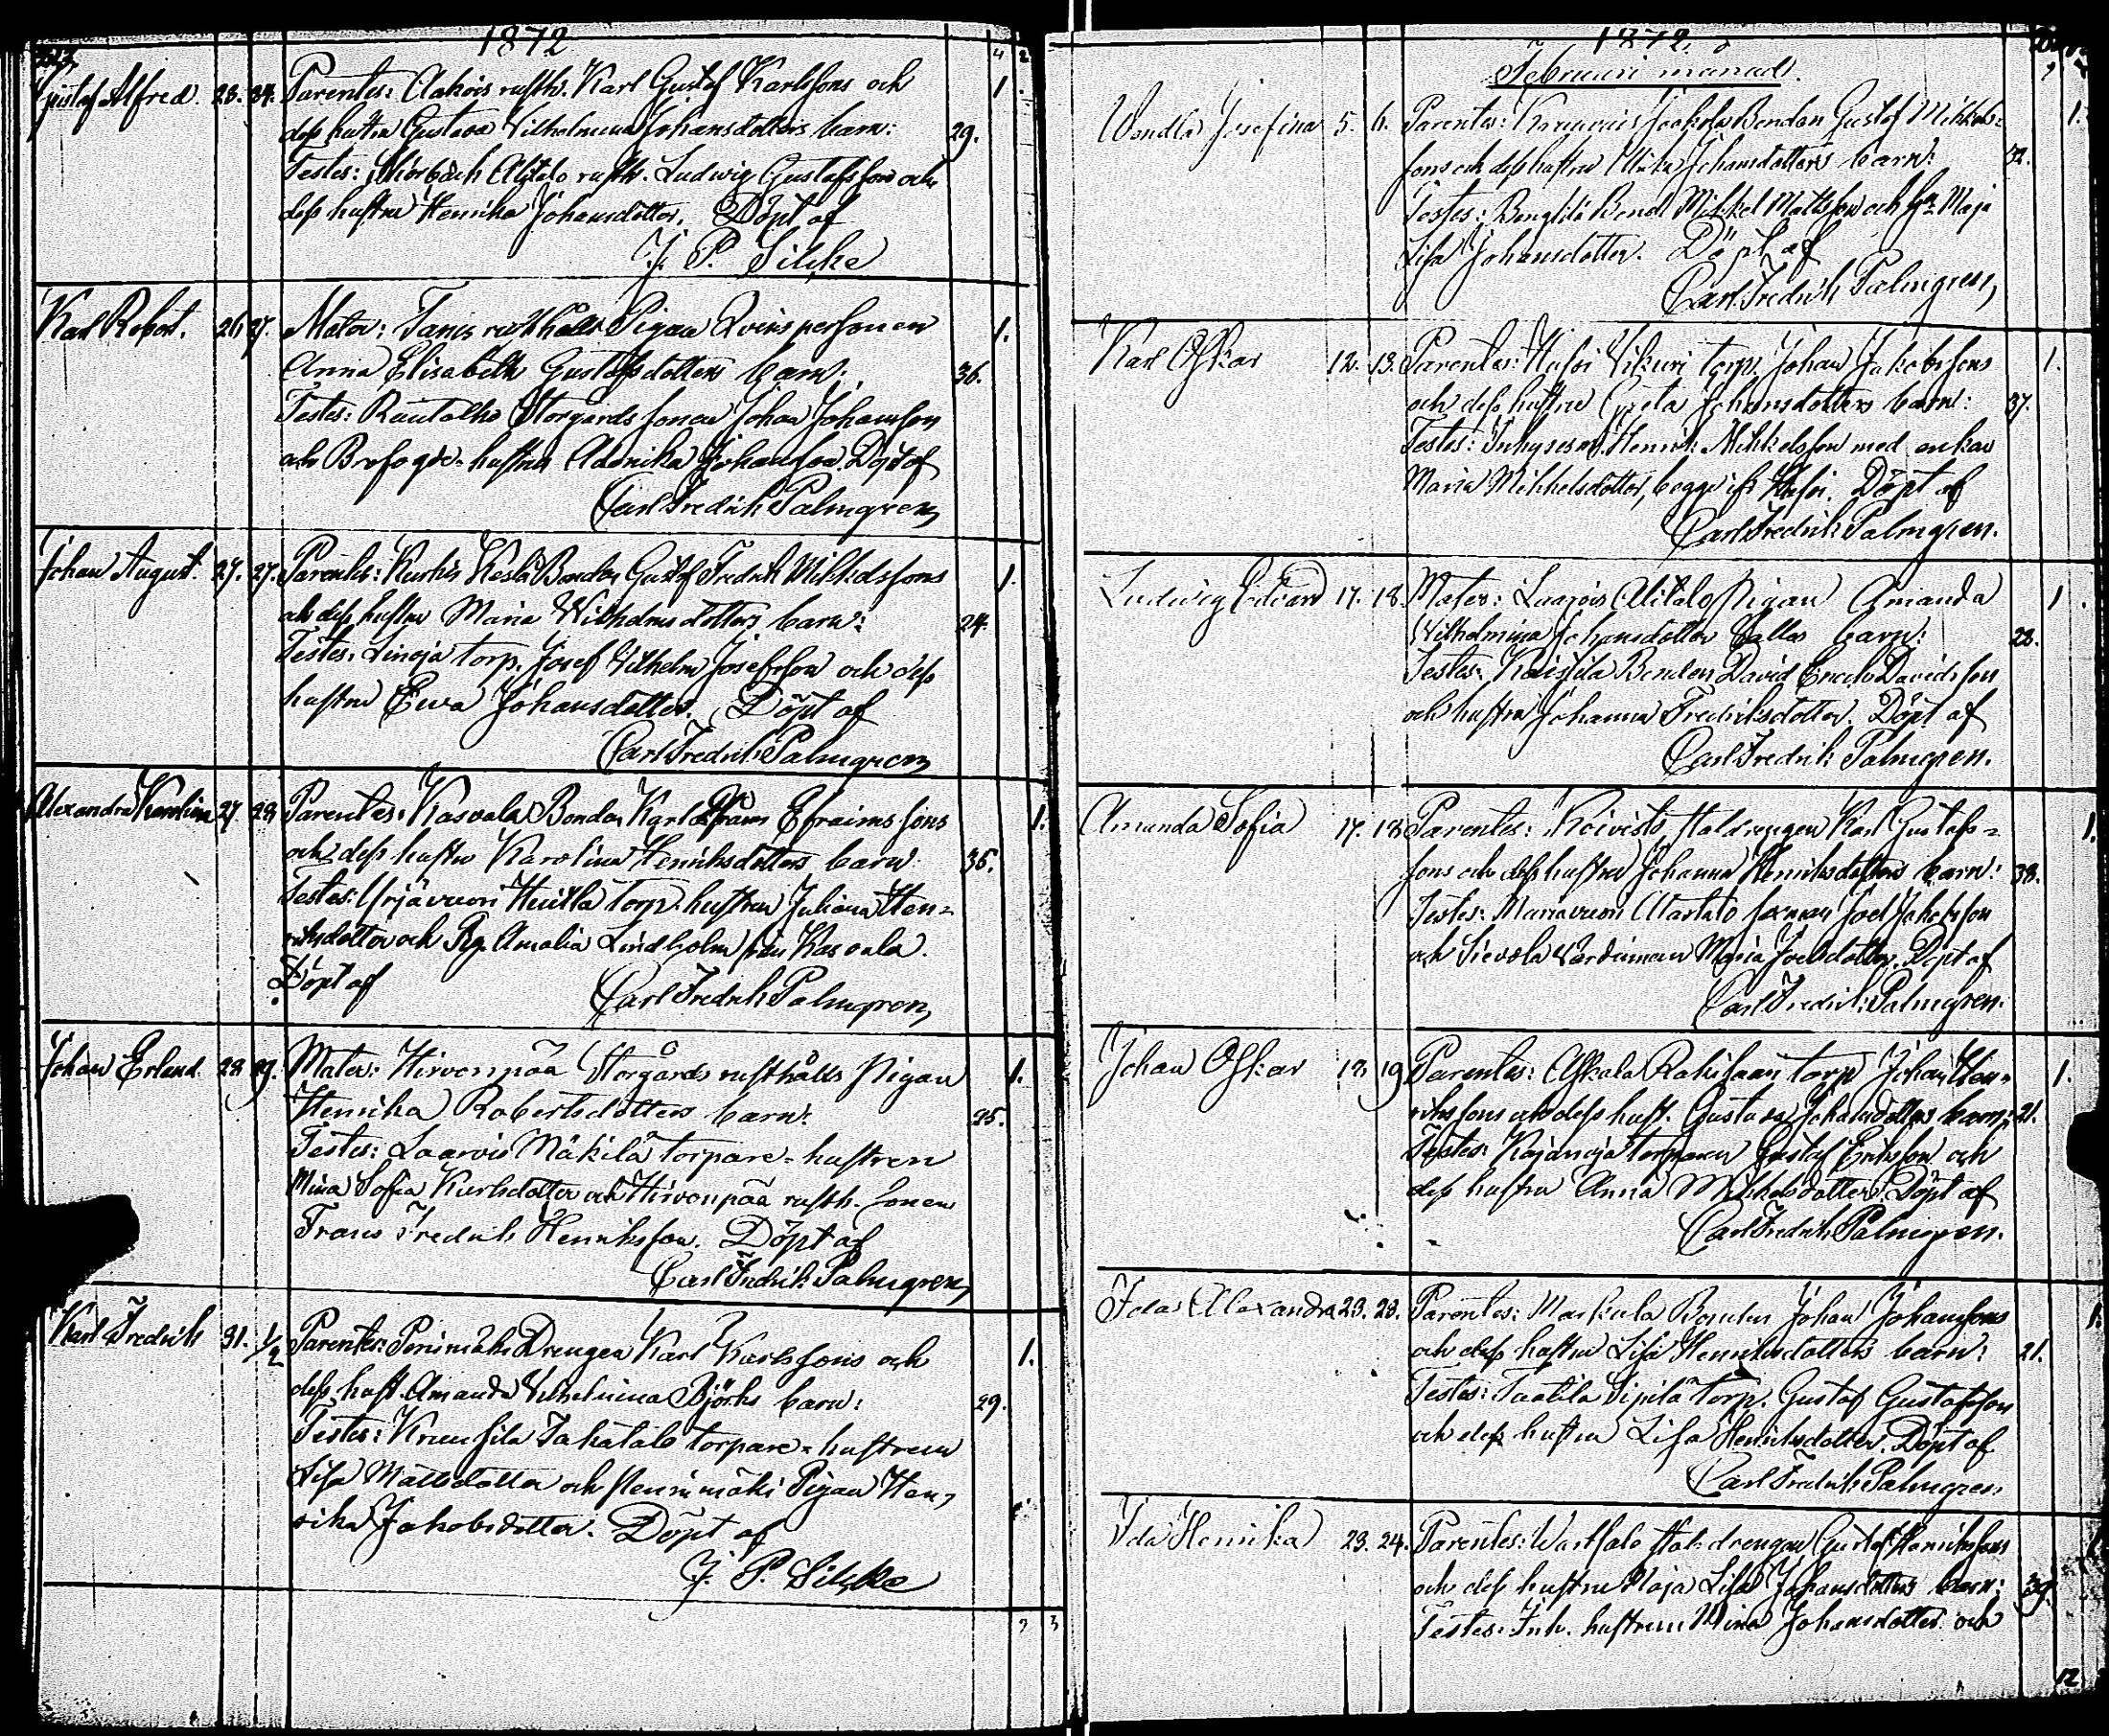 1872
Gustaf Alfred. 23. 24. Parentes: rusth. Karl Gustaf Karlssons och 1
dess hustru Gustava Vilhelmina Johansdotters barn: 29.
Testes: Alitalo rusth. Ludvig Gustafsson och
dess hustru Henrika Johansdotter. Döpt af
J. P. Silcke
Karl Robert. 26. 27. Mater: rusthålls Pigan Qvinspersonen 1.
Anna Elisabeth Gustafsdotters barn: 36.
Testes: Rautalho Storgårds sonen Johan Johansson
och hustrun Johansson Döpt af
Carl Fredrik Palmgren
Johan August. 27. 27. Parentes: Bonden Gustaf Fredrik Mikkelssons 1.
och dess hustru Maria Wilhelmsdotters barn: 24.
Testes. Linoja torp. Josef Vilhelm Josefsson och dess
hustru Ewa Johansdotter. Döpt af
Carl Fredrik Palmgren
Alexandra Karolina 27. 29 Parentes: Kasvala Bonden Karl Efraims sons 1.
och dess hustru Karolina Henriksdotters barn: 36.
Testes: Yrjävuori Heikkilä torp. hustrun Juliana Hen=
riksdotter och Pig. Amalia Lindholm från Kasvala.
Döpt af Carl Fredrik Palmgren
Johan Erland. 28 29. Mater: Hirvonpää Storgårds rusthålls Pigan 1.
Henrika Robertsdotters barn: 25.
Testes: Laarois Mäkilä torpare=hustrun
Mina Sofia Karlsdotter och Hirvonpää rusth. sonen
Frans Fredrik Henriksson. Döpt af
Carl Fredrik Palmgren
Karl Fredrik 31. 1/2 Parentes: Penimäki Drengen Karl Karlssons och 1.
dess hust. Amanda Vilhelmina Björks barn: 29.
Testes: Krunsila Jakatalo torpare=hustrun
Lisa Mattsdotter och Penimäki Pigan Hen=
rika Jakobsdotter. Döpt af
J. P. Silcke
2 3
1872.
Februari månad.
Wendla Josefina 5. 6. Parentes: Jaakola Bonden Gustaf Mikkels= 1.
sons och dess hustru Ulrika Johansdotters barn: 32.
Testes: Bonden Mikkel Mattsson och Maja
Lisa Johansdotter. Döpt af
Carl Fredrik Palmgren
Karl Oskar 12. 13. Parentes: torp. Johan Jakobssons 1.
och dess hustru Greta Johansdotters barn: 37.
Testes: Inhyses Henrik Mikkelsson med enkan
Maria Mikkelsdotter, begge ifr. Döpt af
Carl Fredrik Palmgren.
Ludvig Edvard 17. 18. Mater: Laarois Alitalo Pigan Amanda 1
Wilhelmina Johansdotter barn: 23.
Testes: Bonden David Davidsson
och hustru Johanna Fredriksdotter. Döpt af
Carl Fredrik Palmgren.
Amanda Sofia 17. 18 Parentes: Koivisto Staldrengen Karl Gustafs= 1.
sons och dess hustru Johanna Henriksdotters barn: 38.
Testes: Alastalo sonen Joel Johansson
och Sievola Värdinnan Maria Joelsdotter. Döpt af
Carl Fredrik Palmgren.
Johan Oskar 18. 19 Parentes: Askala torp Johan Hen= 1.
rikssons och dess hust. Gustava Johansdotters barn: 21.
Testes: Kajanoja torparen Gustaf Eriksson och
dess hustru Anna Mikkelsdotter. Döpt af
Carl Fredrik Palmgren.
Ida Alexandra 23. 23. Parentes: Markula Bonden Johan Johanssons 1.
och dess hustru Lisa Henriksdotters barn: 21.
Testes: Taatila Sipilä torp. Gustaf Gustafsson
och dess hustru Lisa Henriksdotter. Döpt af
Carl Fredrik Palmgren
Ida Henrika 23. 24. Parentes: drengen Gustaf Henrikssons 1
och dess hustru Maja Lisa Johansdotters barn: 39.
Testes: Inh. hustrun Mina Johansdotter och
12